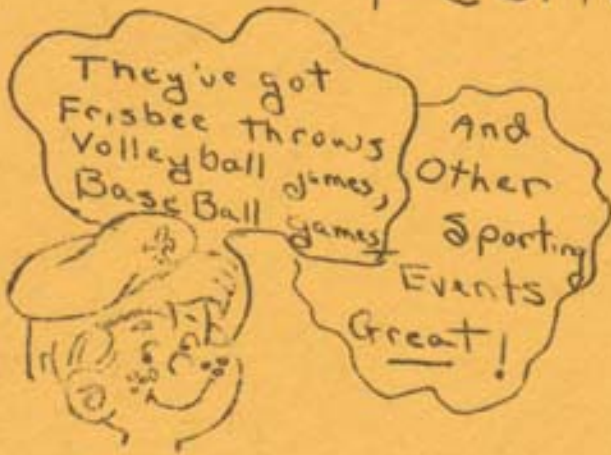 They've got
Frisbee Throws
Volleyball games,
Base Ball games
And
Other
Sporting
Events
Great!